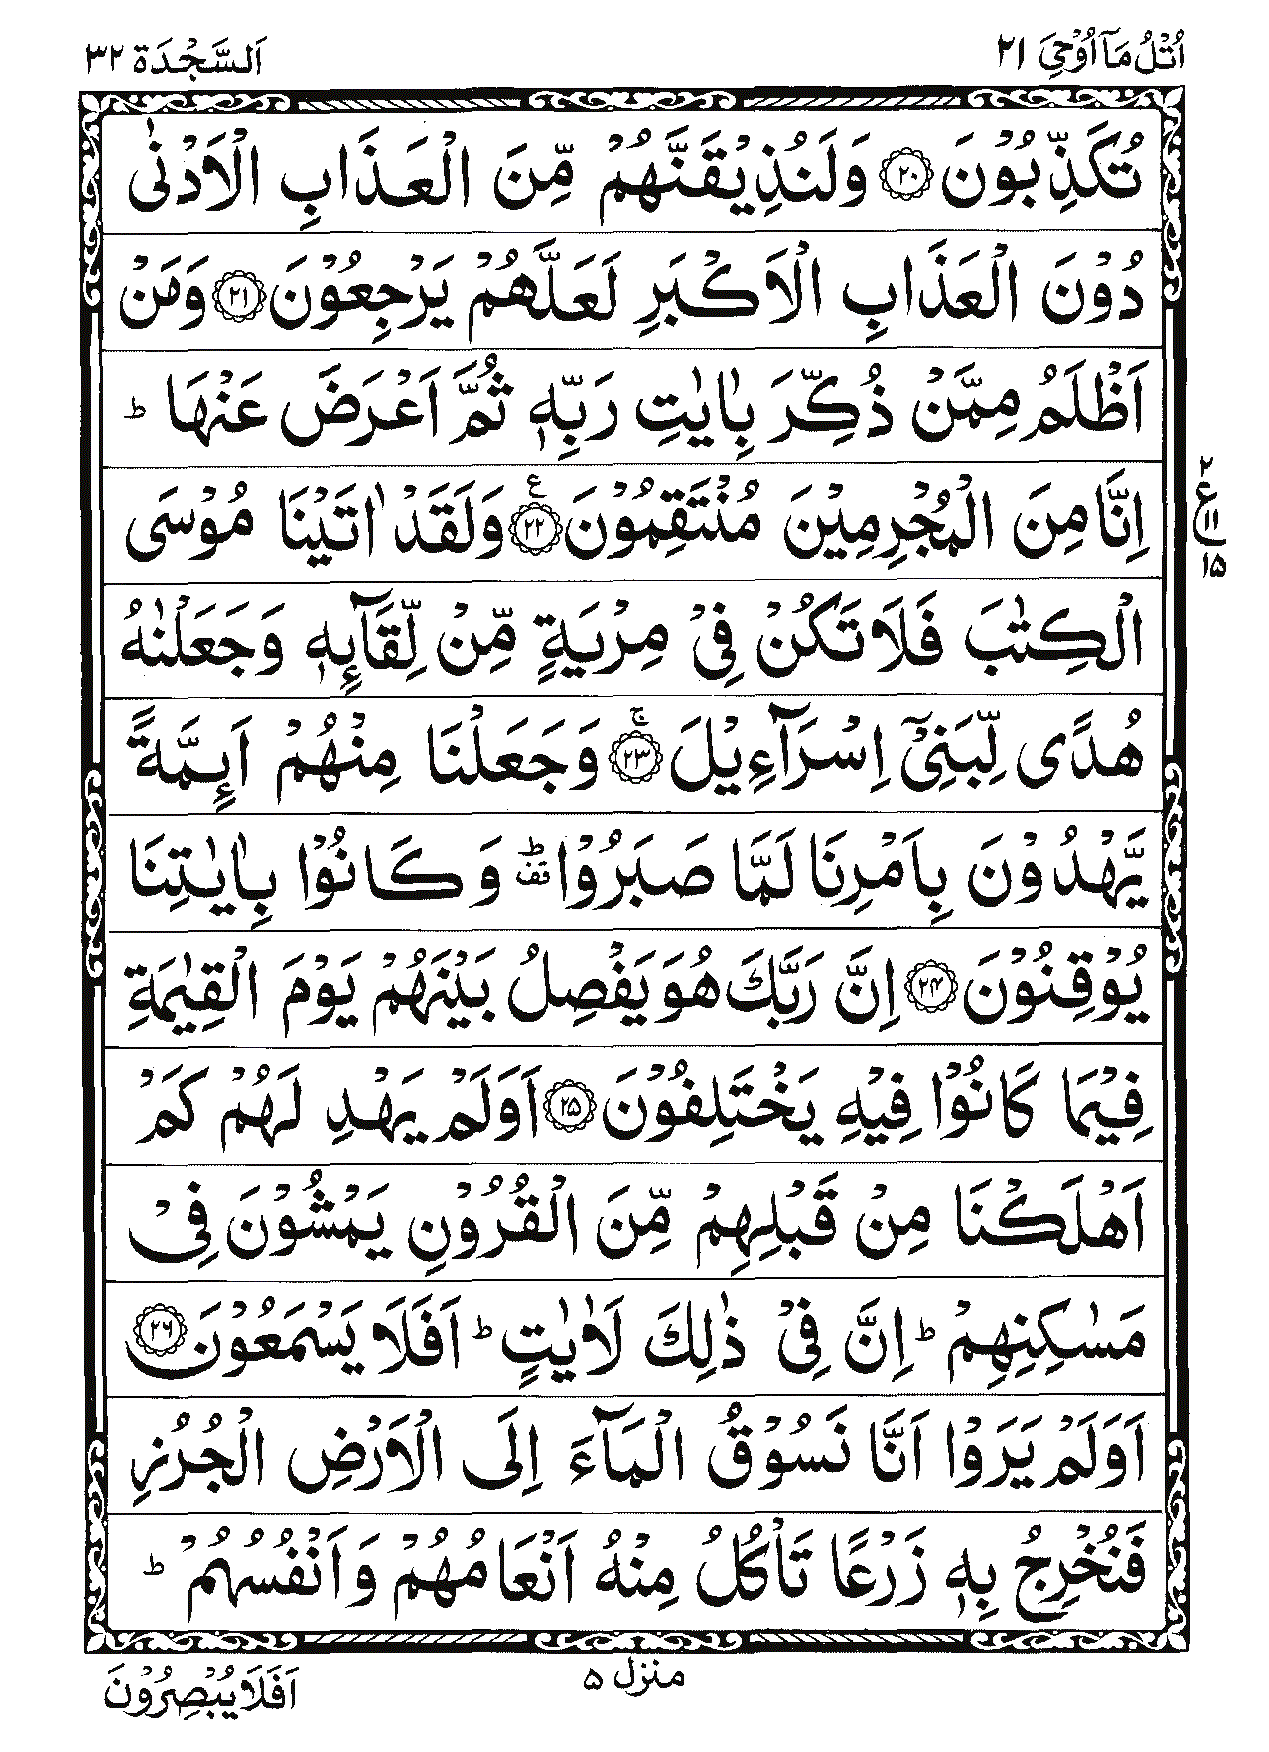 اُتْلُ مَآ اُوْحِیَ ۲۱
اَلسَّجْدَة ۳۲
تُكَذِّبُوْنَ ﴿۲۰﴾ وَلَنُذِیْقَنَّهُمْ مِّنَ الْعَذَابِ الْاَدْنٰی
دُوْنَ الْعَذَابِ الْاَكْبَرِ لَعَلَّهُمْ یَرْجِعُوْنَ ﴿۲۱﴾ وَمَنْ
اَظْلَمُ مِمَّنْ ذُكِّرَ بِاٰیٰتِ رَبِّهٖ ثُمَّ اَعْرَضَ عَنْهَا ؕ
اِنَّا مِنَ الْمُجْرِمِیْنَ مُنْتَقِمُوْنَ ﴿۲۲﴾ ع وَلَقَدْ اٰتَیْنَا مُوْسَی
۲
ع
۱۱
۱۵
الْكِتٰبَ فَلَا تَكُنْ فِیْ مِرْیَةٍ مِّنْ لِّقَآىِٕهٖ وَجَعَلْنٰهُ
هُدًی لِّبَنِیْۤ اِسْرَآءِیْلَ ﴿۲۳﴾ ۚ وَجَعَلْنَا مِنْهُمْ اَىِٕمَّةً
یَّهْدُوْنَ بِاَمْرِنَا لَمَّا صَبَرُوْا ؕ۫ وَكَانُوْا بِاٰیٰتِنَا
یُوْقِنُوْنَ ﴿۲۴﴾ اِنَّ رَبَّكَ هُوَ یَفْصِلُ بَیْنَهُمْ یَوْمَ الْقِیٰمَةِ
فِیْمَا كَانُوْا فِیْهِ یَخْتَلِفُوْنَ ﴿۲۵﴾ اَوَلَمْ یَهْدِ لَهُمْ كَمْ
اَهْلَكْنَا مِنْ قَبْلِهِمْ مِّنَ الْقُرُوْنِ یَمْشُوْنَ فِیْ
مَسٰكِنِهِمْ ؕ اِنَّ فِیْ ذٰلِكَ لَاٰیٰتٍ ؕ اَفَلَا یَسْمَعُوْنَ ﴿۲۶﴾
اَوَلَمْ یَرَوْا اَنَّا نَسُوْقُ الْمَآءَ اِلَی الْاَرْضِ الْجُرُزِ
فَنُخْرِجُ بِهٖ زَرْعًا تَاْكُلُ مِنْهُ اَنْعَامُهُمْ وَاَنْفُسُهُمْ ؕ
منزل ۵
اَفَلَا یُبْصِرُوْنَ